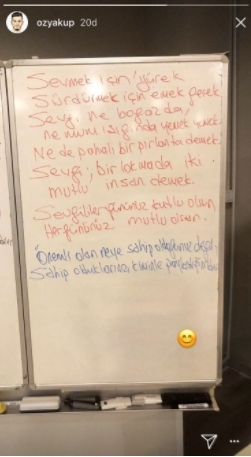 ozyakup 20d
Sevmek için yürek
Sürdürmek için emek gerek.
Sevgi, ne boğazda,
ne mum ışığında yemek yemek.
Ne de pahalı bir pırlanta demek.
Sevgi, bir lokmada iki
mutlu insan demek.
Sevgililer gününüz kutlu olsun,
Her gününüz mutlu olsun.
Önemli olan neye sahip olduğumuz değil,
Sahip olduklarınızı kiminle